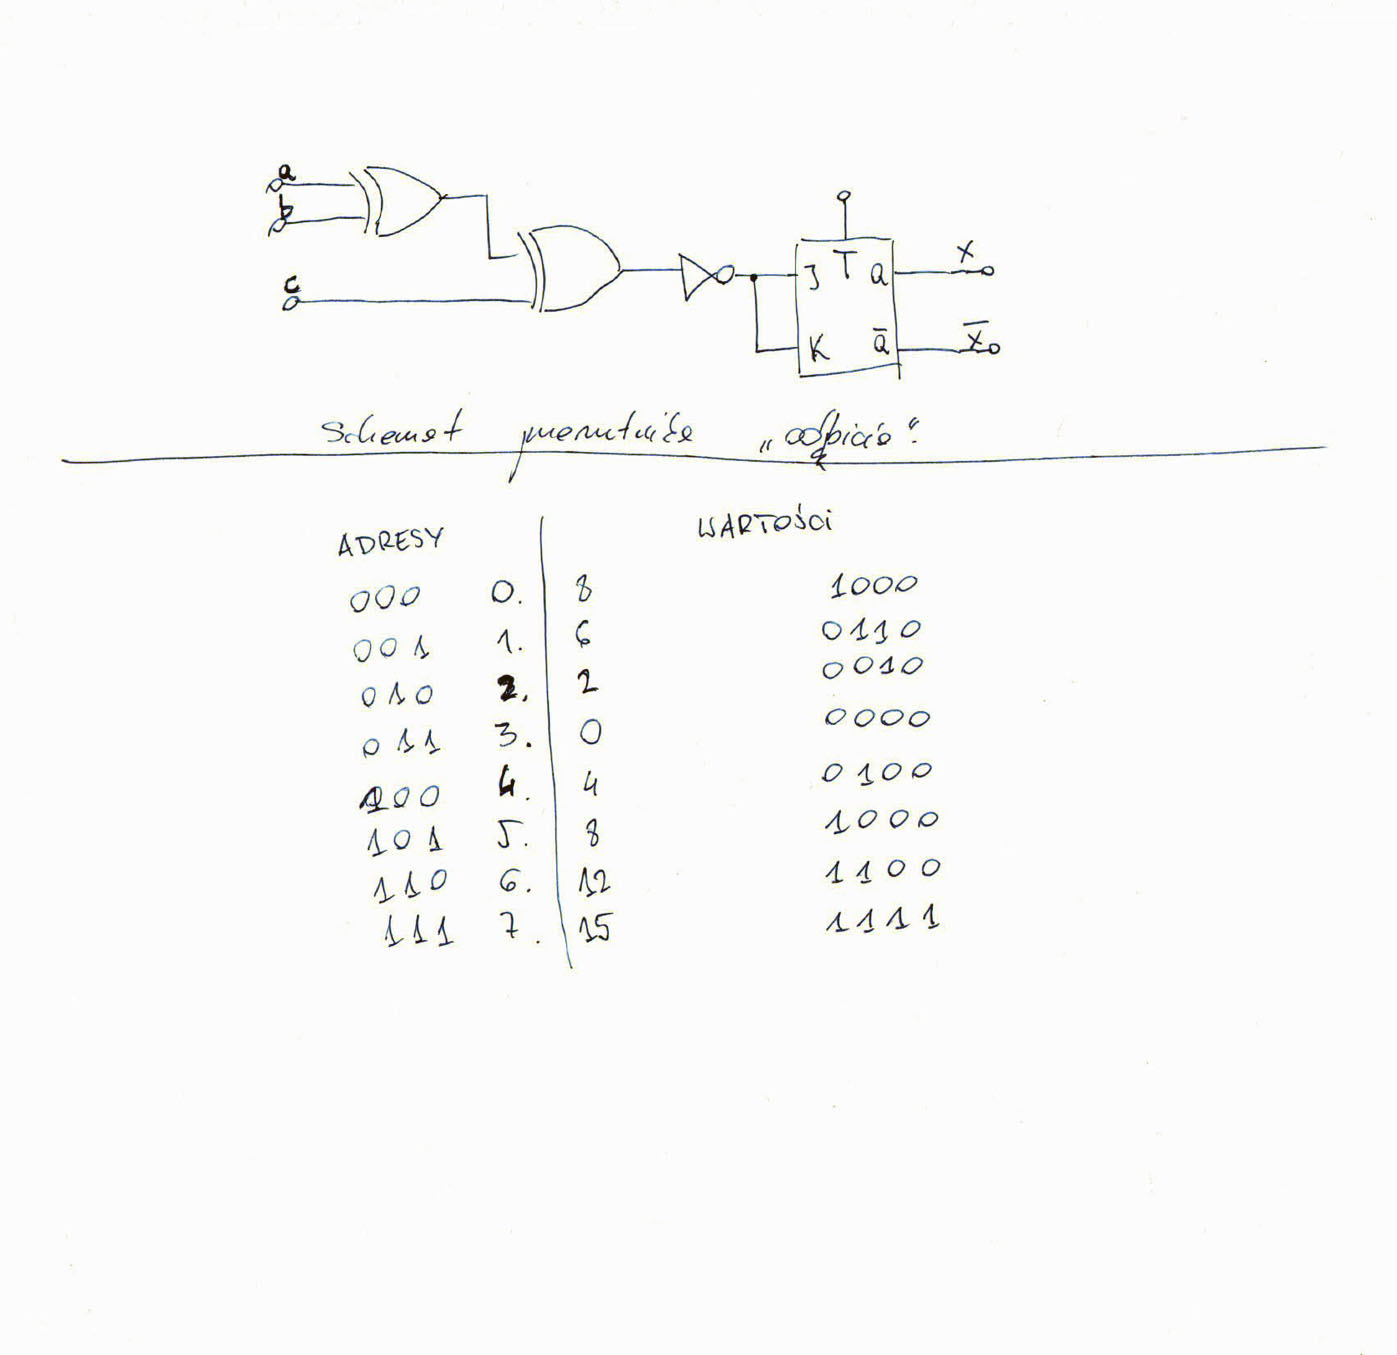 a
b
c
J T Q X
K Q̅ X̅
Schemat przerzutnika „odbicia”.
ADRESY WARTOŚCI
000 0. 8 1000
001 1. 6 0110
010 2. 2 0010
011 3. 0 0000
100 4. 4 0100
101 5. 8 1000
110 6. 12 1100
111 7. 15 1111